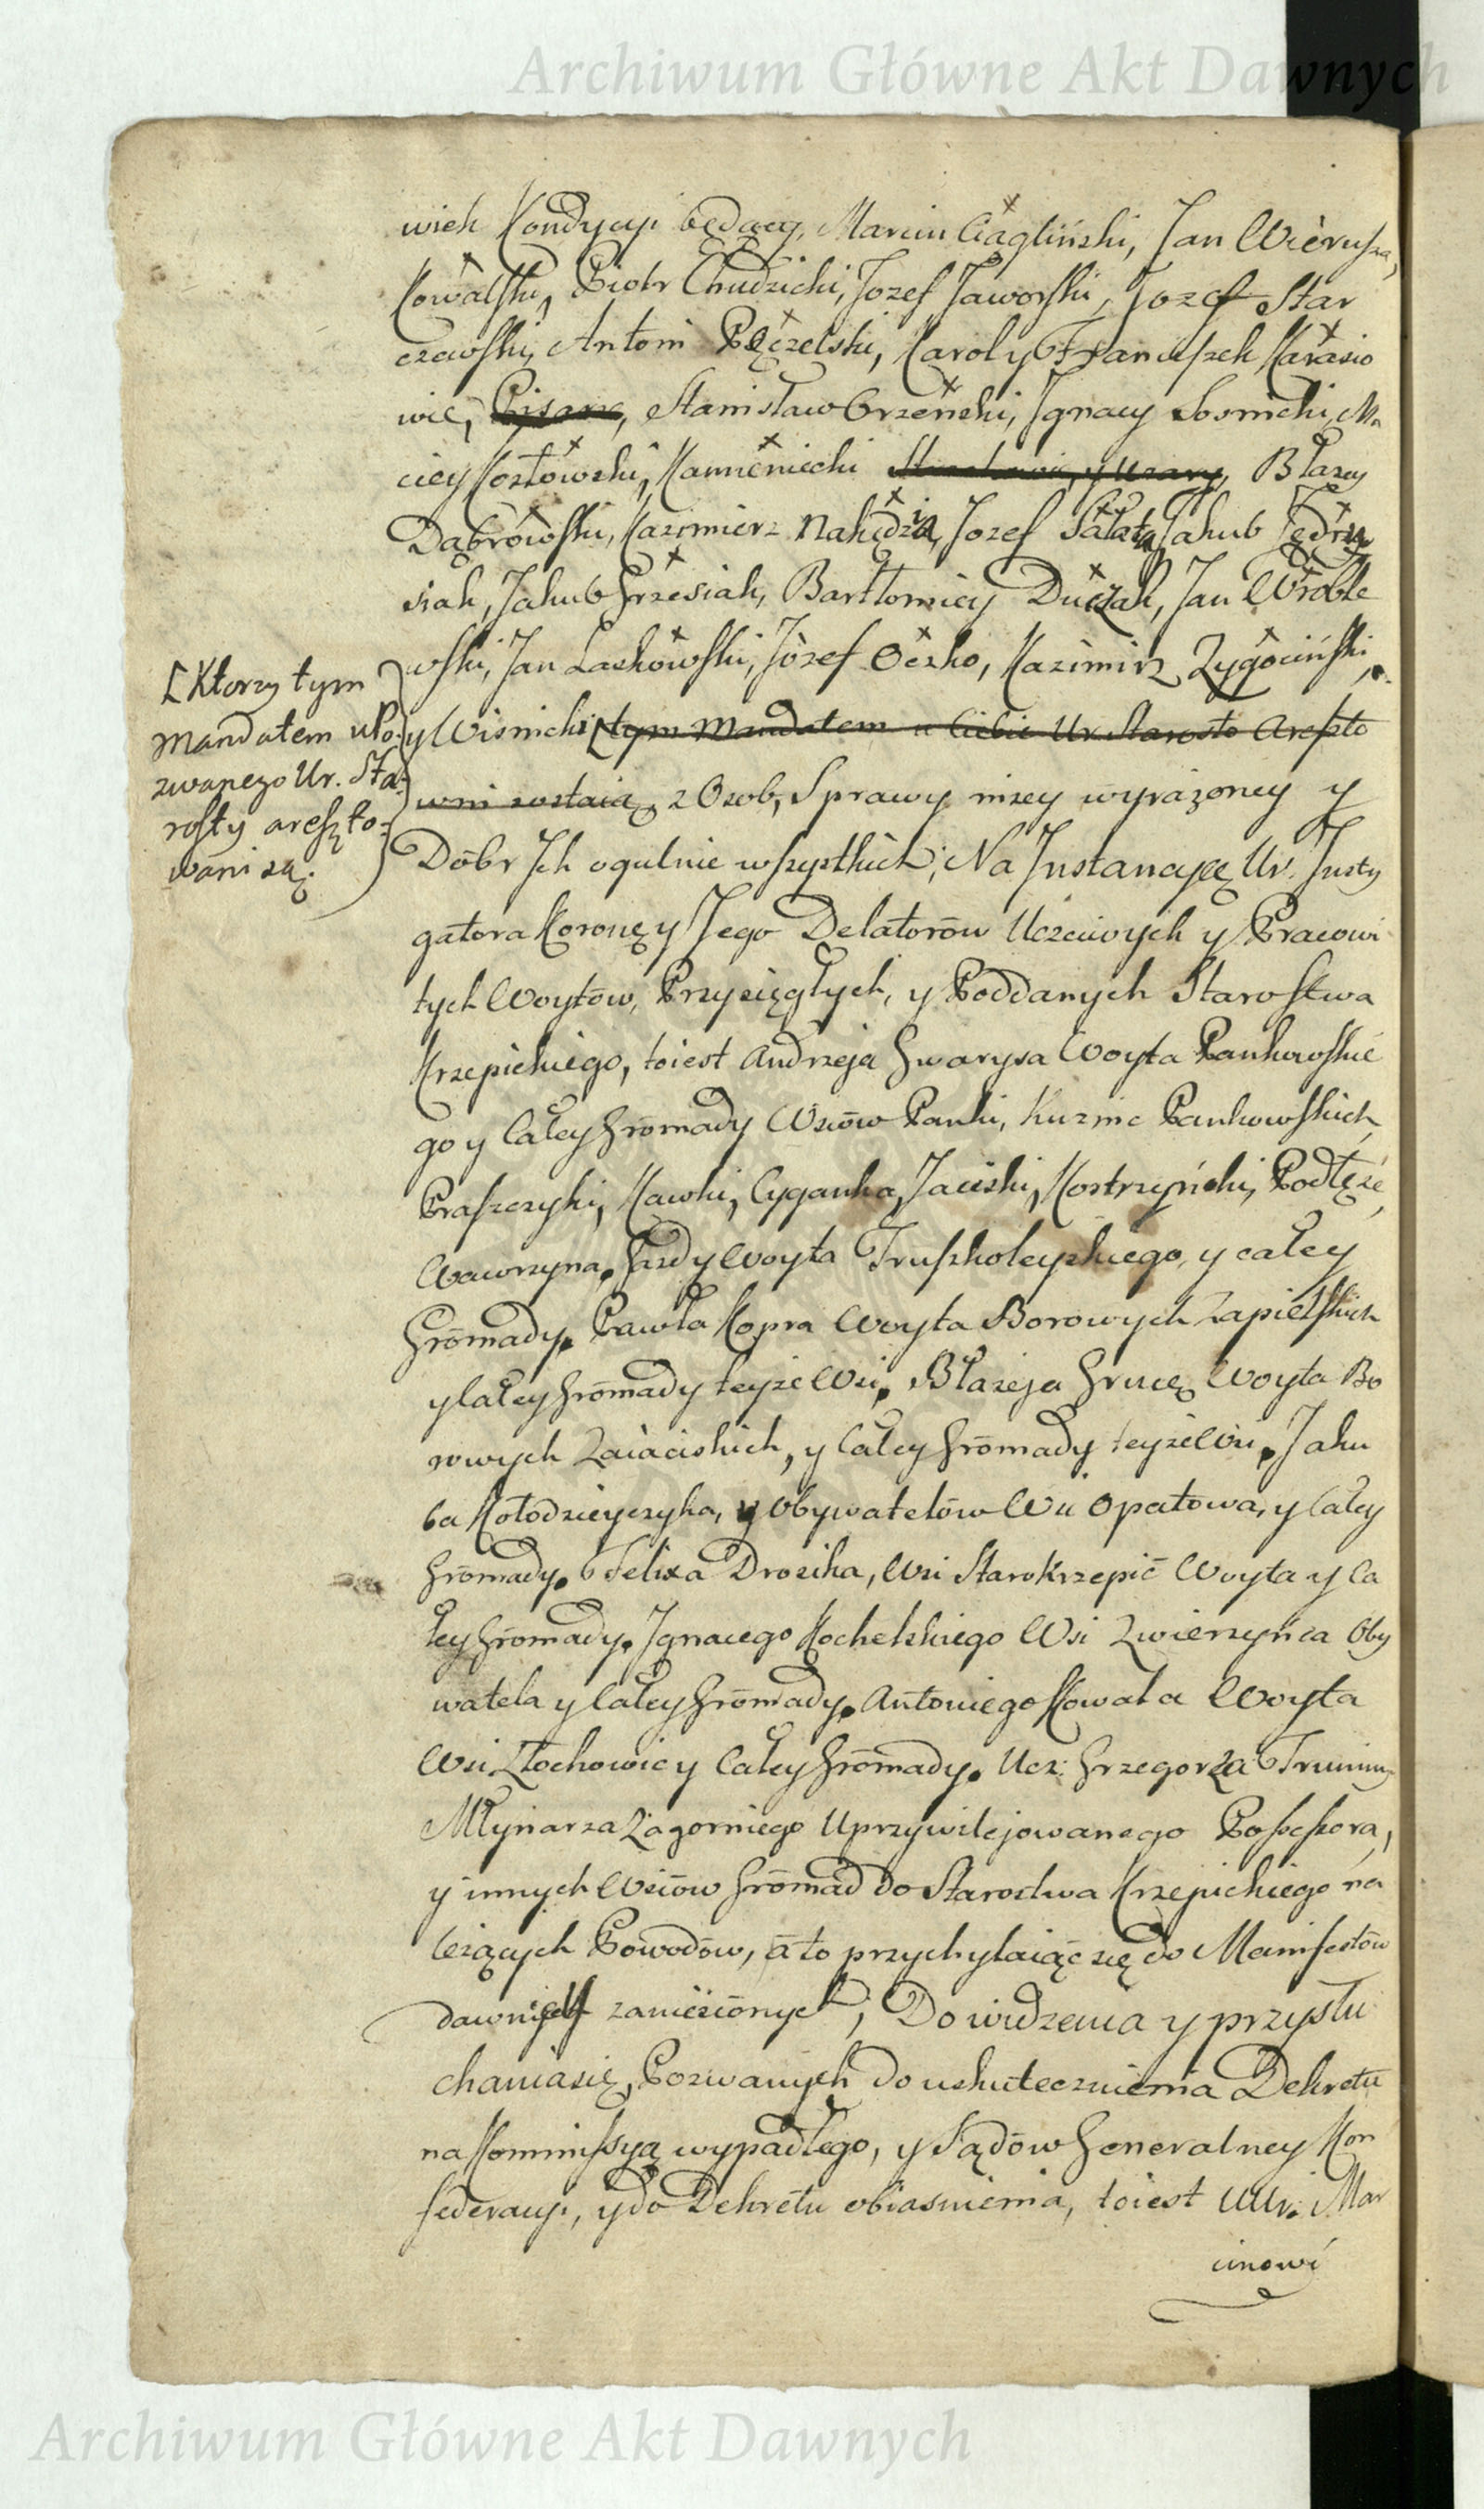 Archiwum Główne Akt Dawnych
wich Kondycyi będący, Marcin Ciągliński, Jan Wierusza,
Kowalski, Piotr Chudzicki, Jozef Jaworski, Jozef Star
czewski, Antoni Pęczelski, Karol y Franciszek Karasio
wie, Pisarze, Stanisław Grzeński, Jgnacy Sosnicki, Ma
ciey Kozłowski, Kamieniecki y Błazey
Dąbrowski, Kazimierz Nakędzia, Jozef Sałata, Jakub Jędrzy
siak, Jakub Grzesiak, Bartłomiey Duczak, Jan Wroble
wski, Jan Laskowski, Józef Oczko, Kazimirz Zygociński,
y Wisnicki [tym Mandatem u Ciebie Ur. Starosto Areszto
wni zostaią, z Osob, Sprawy nizey wyrażoney y
[Ktorzy tym
Mandatem u Po:
zwanego Ur. Sta:
rosty areszto:
wani są.
Dóbr Jch ogulnie wszystkich; Na Jnstancyą Ur. Jnsty
gatora Koronę y Jego Delatorów Uczciwych y Pracowi
tych Woytów, Przysięgłych, y Poddanych Starostwa
Krzepickiego, toiest Andrzeja Gwarysa Woyta Pankowskie
go y Całey Gromady Wsiów Panki, Kuznic Pankowskich,
Praszczyki, Kawki, Cyganka, Jaciski, Kostrzyński, Podłęże,
Wawrzyna Gazdy Woyta Truskoleyskiego, y całey
Gromady. Pawła Kopra Woyta Borowych Zapielskich
y Całey Gromady teyże Wsi, Błazeja Grucę Woyta Bo
rowych Zaiąciskich, y Całey Gromady teyże Wsi, Jaku
ba Kołodzieyczyka, y Obywatelów Wsi Opatowa, y Całey
Gromady. Felixa Drosika, Wsi Starokrzepic Woyta y Ca
łey Gromady. Jgnacego Kochelskiego Wsi Zwierzyńca Oby
watela y Całey Gromady. Antoniego Kowala Woyta
Wsi Złochowic y Całey Gromady. Ucz: Grzegorza
Młynarza Zagorniego Uprzywilejowanego Possessora,
y innych Wsiów Gromad do Starostwa Krzepickiego na
leżących Powodów, a to przychylaiąc się do Manifestów
dawniey zaniesionych; Do widzenia y przysłu
chania się, Pozwanych do uskutecznienia Dekretu
na Kommissyą wypadłego, y Sądów Generalney Kon
federacyi, y do Dekretu obiasnienia, toiest UUr. Mar
cinowi
Archiwum Główne Akt Dawnych